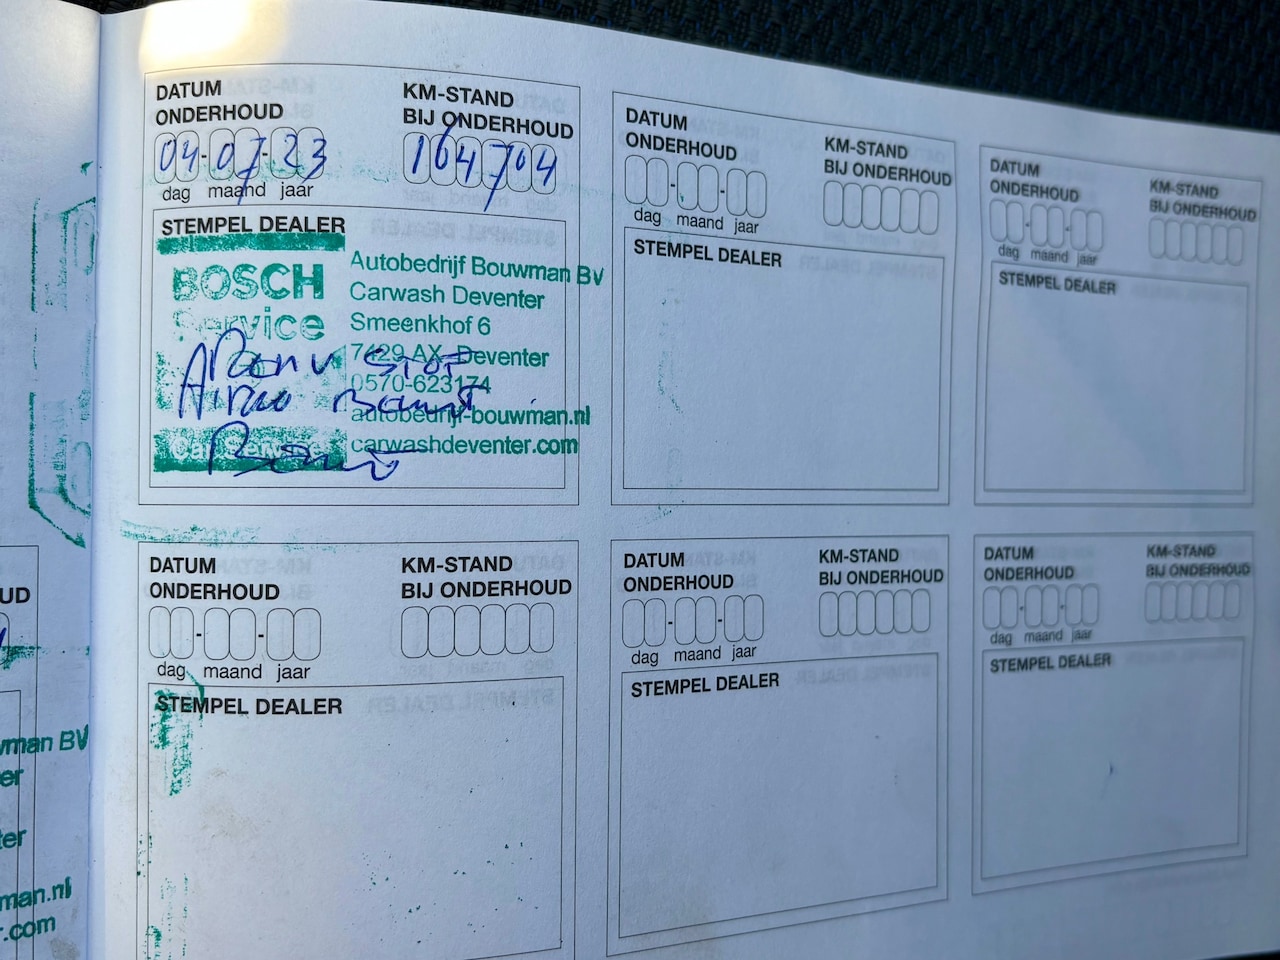 DATUM
ONDERHOUD
KM-STAND
BIJ ONDERHOUD
04-07-23
164704
dag maand jaar
STEMPEL DEALER
BOSCH
Service
Car Service
Autobedrijf Bouwman BV
Carwash Deventer
Smeenkhof 6
7429 AX Deventer
0570-623174
autobedrijf-bouwman.nl
carwashdeventer.com
DATUM
ONDERHOUD
KM-STAND
BIJ ONDERHOUD
dag maand jaar
STEMPEL DEALER
DATUM
ONDERHOUD
KM-STAND
BIJ ONDERHOUD
dag maand jaar
STEMPEL DEALER
UD
wman BV
er
ter
man.nl
.com
DATUM
ONDERHOUD
KM-STAND
BIJ ONDERHOUD
dag maand jaar
STEMPEL DEALER
DATUM
ONDERHOUD
KM-STAND
BIJ ONDERHOUD
dag maand jaar
STEMPEL DEALER
DATUM
ONDERHOUD
KM-STAND
BIJ ONDERHOUD
dag maand jaar
STEMPEL DEALER